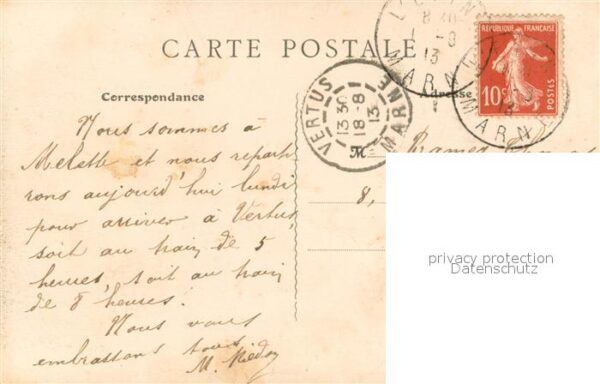 CARTE POSTALE
Correspondance
Adresse
RÉPUBLIQUE FRANÇAISE
10c
POSTES
VERTUS
13 30
18 - 8
13
MARNE
8 30
13
MARNE
MARNE
Nous sommes à
Melette et nous reparti-
rons aujourd'hui lundi
pour arriver à Vertus,
soit au train de 5
heures, soit au train
de 8 heures.
Nous vous
embrassons tous
M.
8,
privacy protection
Datenschutz